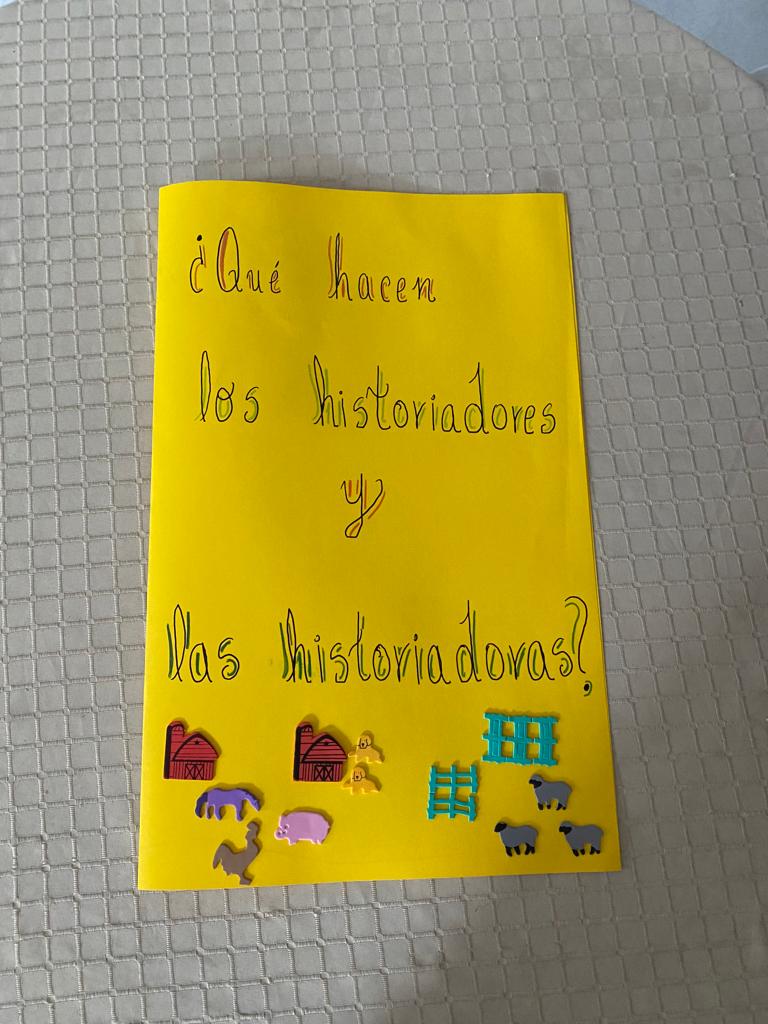 ¿Qué hacen
los historiadores
y
las historiadoras?